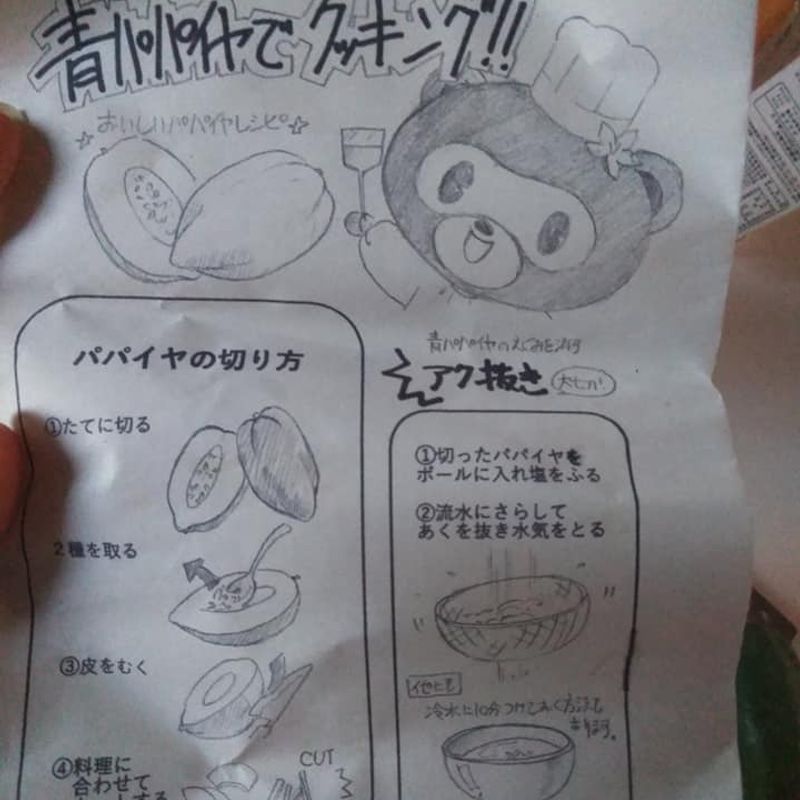 青パパイヤでクッキング!!
☆おいしいパパイヤレシピ☆
パパイヤの切り方
①たてに切る
2種を取る
③皮をむく
④料理に
合わせて
カットする
CUT
青パパイヤの
アク抜き
①切ったパパイヤを
ボールに入れ塩をふる
②流水にさらして
あくを抜き水気をとる
他にも
冷水に10分つけておく方法も
あります。